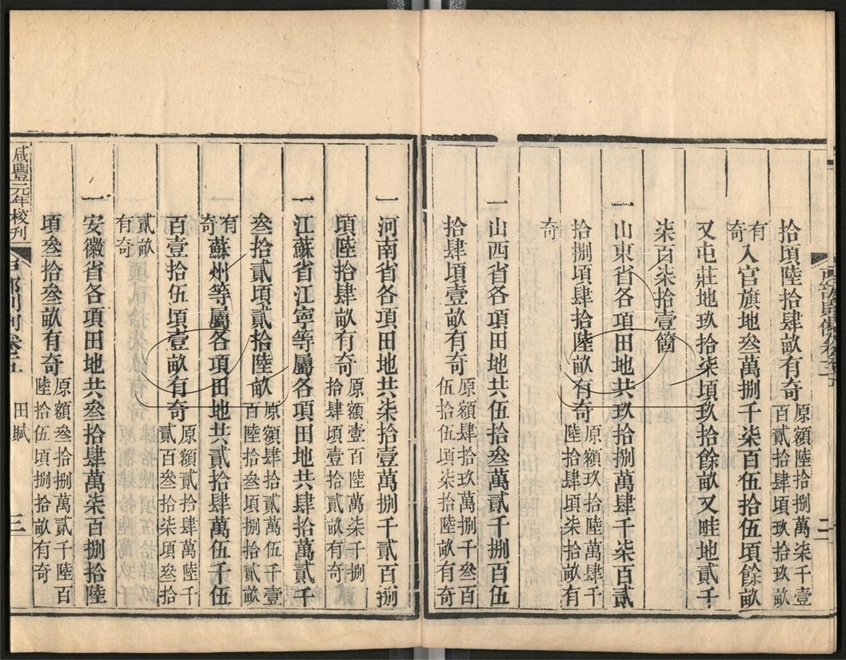 拾頃陸拾肆畝有奇原額陸拾肆萬柒千壹百肆拾捌頃玖拾玖畝
有奇入官旗地叁萬捌千柒百伍拾伍頃餘畝
又屯莊地玖拾柒頃玖拾餘畝又畦地貳千
柒百柒拾壹箇
一山東省各項田地共玖拾捌萬肆千柒百貳
拾捌頃肆拾陸畝有奇原額玖拾陸萬肆千陸拾肆頃柒拾畝有
奇
一山西省各項田地共伍拾叁萬貳千捌百伍
拾肆頃壹畝有奇原額肆拾玖萬柒千叁百伍拾伍頃捌拾畝有奇
一河南省各項田地共柒拾壹萬捌千貳百捌
頃陸拾肆畝有奇原額壹百萬柒千捌拾肆頃壹拾貳畝有奇
一江蘇省江寧等屬各項田地共肆拾萬貳千
叁拾貳頃貳拾陸畝原額肆拾貳萬伍千壹百陸拾叁頃捌拾貳畝
有奇蘇州等屬各項田地共貳拾肆萬伍千伍
百壹拾伍頃壹畝有奇原額貳拾肆萬陸千貳百叁拾柒頃叁拾
貳畝有奇
一安徽省各項田地共叁拾肆萬柒百捌拾陸
頃叁拾叁畝有奇原額叁拾捌萬貳千陸百陸拾伍頃捌拾畝有奇
咸豐元年校刊
卷五 田賦 三